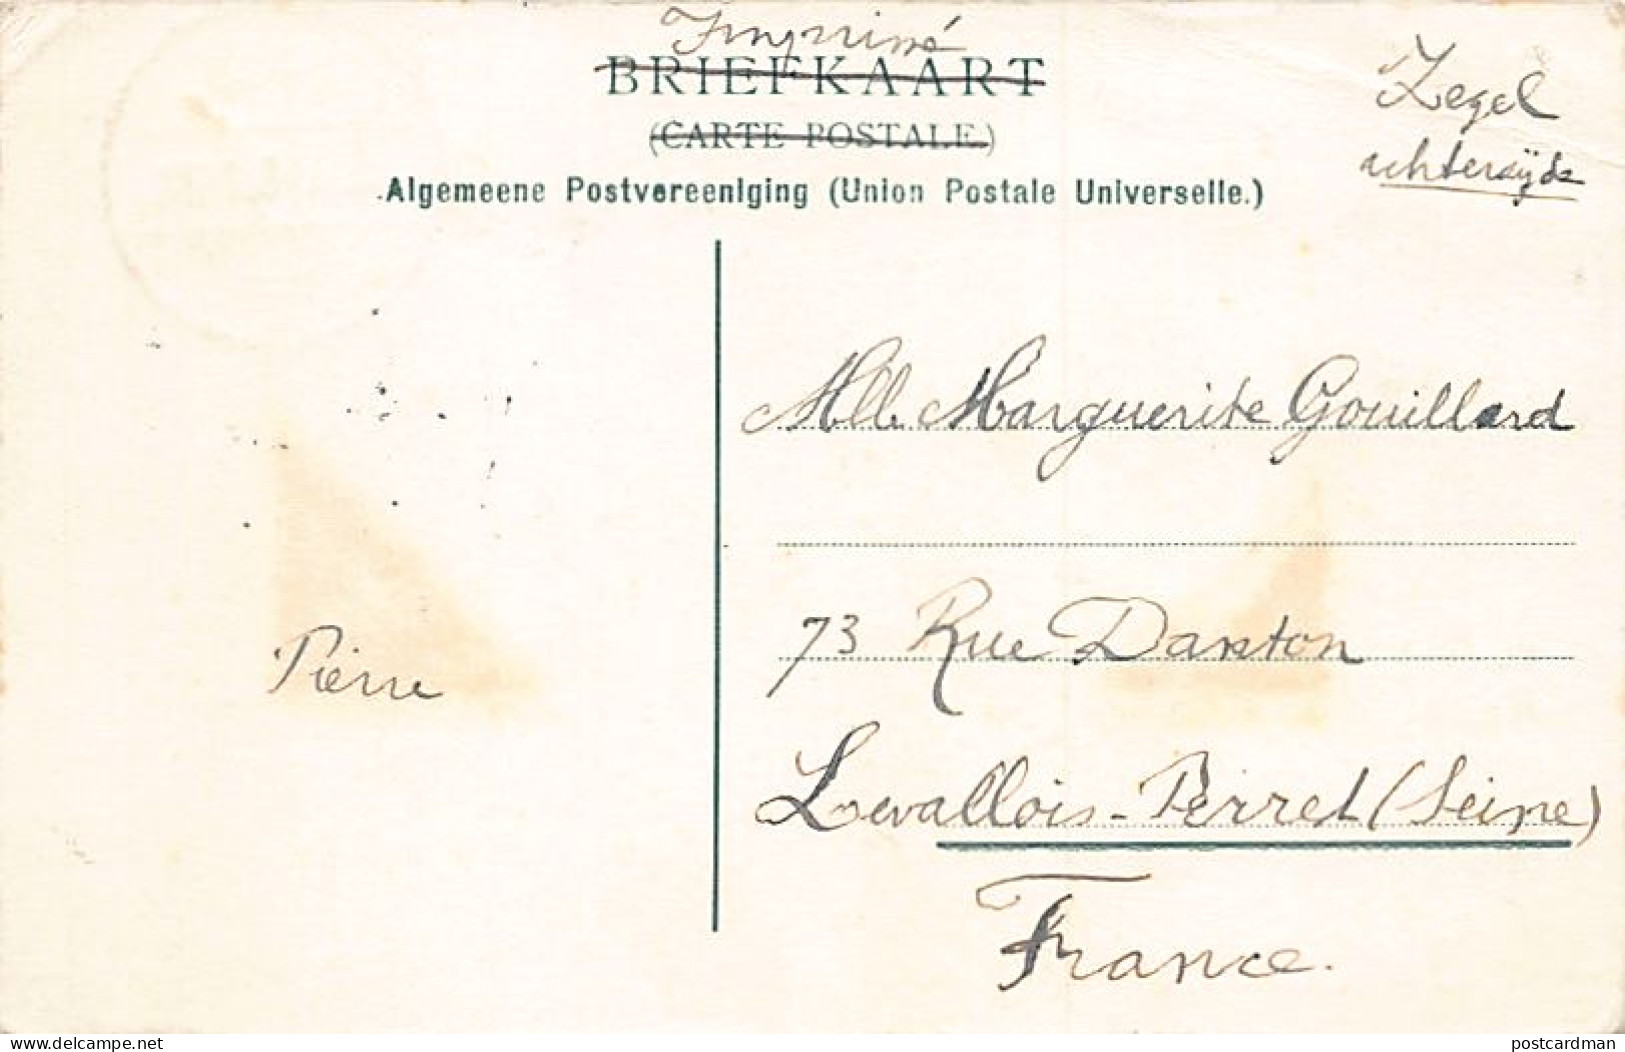 Imprimé
BRIEFKAART
(CARTE POSTALE.)
Algemeene Postvereeniging (Union Postale Universelle.)
Zegel
achterzijde
Mlle Marguerite Gouillard
73 Rue Danton
Pierre
Levallois-Perret (Seine)
France.
delcampe.net
postcardman